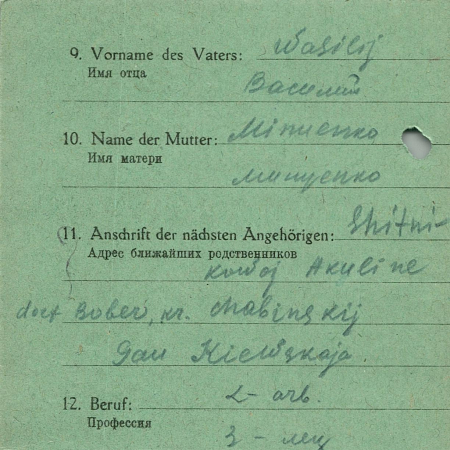 9. Vorname des Vaters: Wasilij
Имя отца Василий
10. Name der Mutter: Minuenko
Имя матери
11. Anschrift der nächsten Angehörigen: Shitni-
Адрес ближайших родственников
kowoj Akuline
dorf Bober, kr. Chabinskij
Gau Kiewskaja.
12. Beruf: L - arb.
Профессия